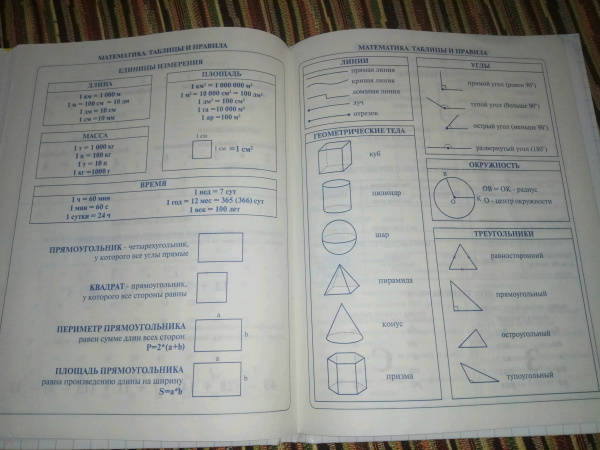 МАТЕМАТИКА. ТАБЛИЦЫ И ПРАВИЛА
ЕДИНИЦЫ ИЗМЕРЕНИЯ
ДЛИНА
1 км = 1 000 м
1 м = 100 см = 10 дм
1 дм = 10 см
1 см = 10 мм
ПЛОЩАДЬ
1 км² = 1 000 000 м²
1 м² = 10 000 см² = 100 дм²
1 дм² = 100 см²
1 га = 10 000 м²
1 ар = 100 м²
1 см
1 см = 1 см²
МАССА
1 т = 1 000 кг
1 ц = 100 кг
1 т = 10 ц
1 кг = 1000 г
ВРЕМЯ
1 ч = 60 мин
1 мин = 60 с
1 сутки = 24 ч
1 нед = 7 сут
1 год = 12 мес = 365 (366) сут
1 век = 100 лет
ПРЯМОУГОЛЬНИК - четырехугольник,
у которого все углы прямые
КВАДРАТ - прямоугольник,
у которого все стороны равны
ПЕРИМЕТР ПРЯМОУГОЛЬНИКА
равен сумме длин всех сторон
P=2*(a+b)
a
b
ПЛОЩАДЬ ПРЯМОУГОЛЬНИКА
равна произведению длины на ширину
S=a*b
a
b
МАТЕМАТИКА. ТАБЛИЦЫ И ПРАВИЛА
ЛИНИИ
прямая линия
кривая линия
ломаная линия
луч
отрезок
ГЕОМЕТРИЧЕСКИЕ ТЕЛА
куб
цилиндр
шар
пирамида
конус
призма
УГЛЫ
прямой угол (равен 90°)
тупой угол (больше 90°)
острый угол (меньше 90°)
развернутый угол (180°)
ОКРУЖНОСТЬ
B
O
K
OB = OK - радиус
O - центр окружности
ТРЕУГОЛЬНИКИ
равносторонний
прямоугольный
остроугольный
тупоугольный